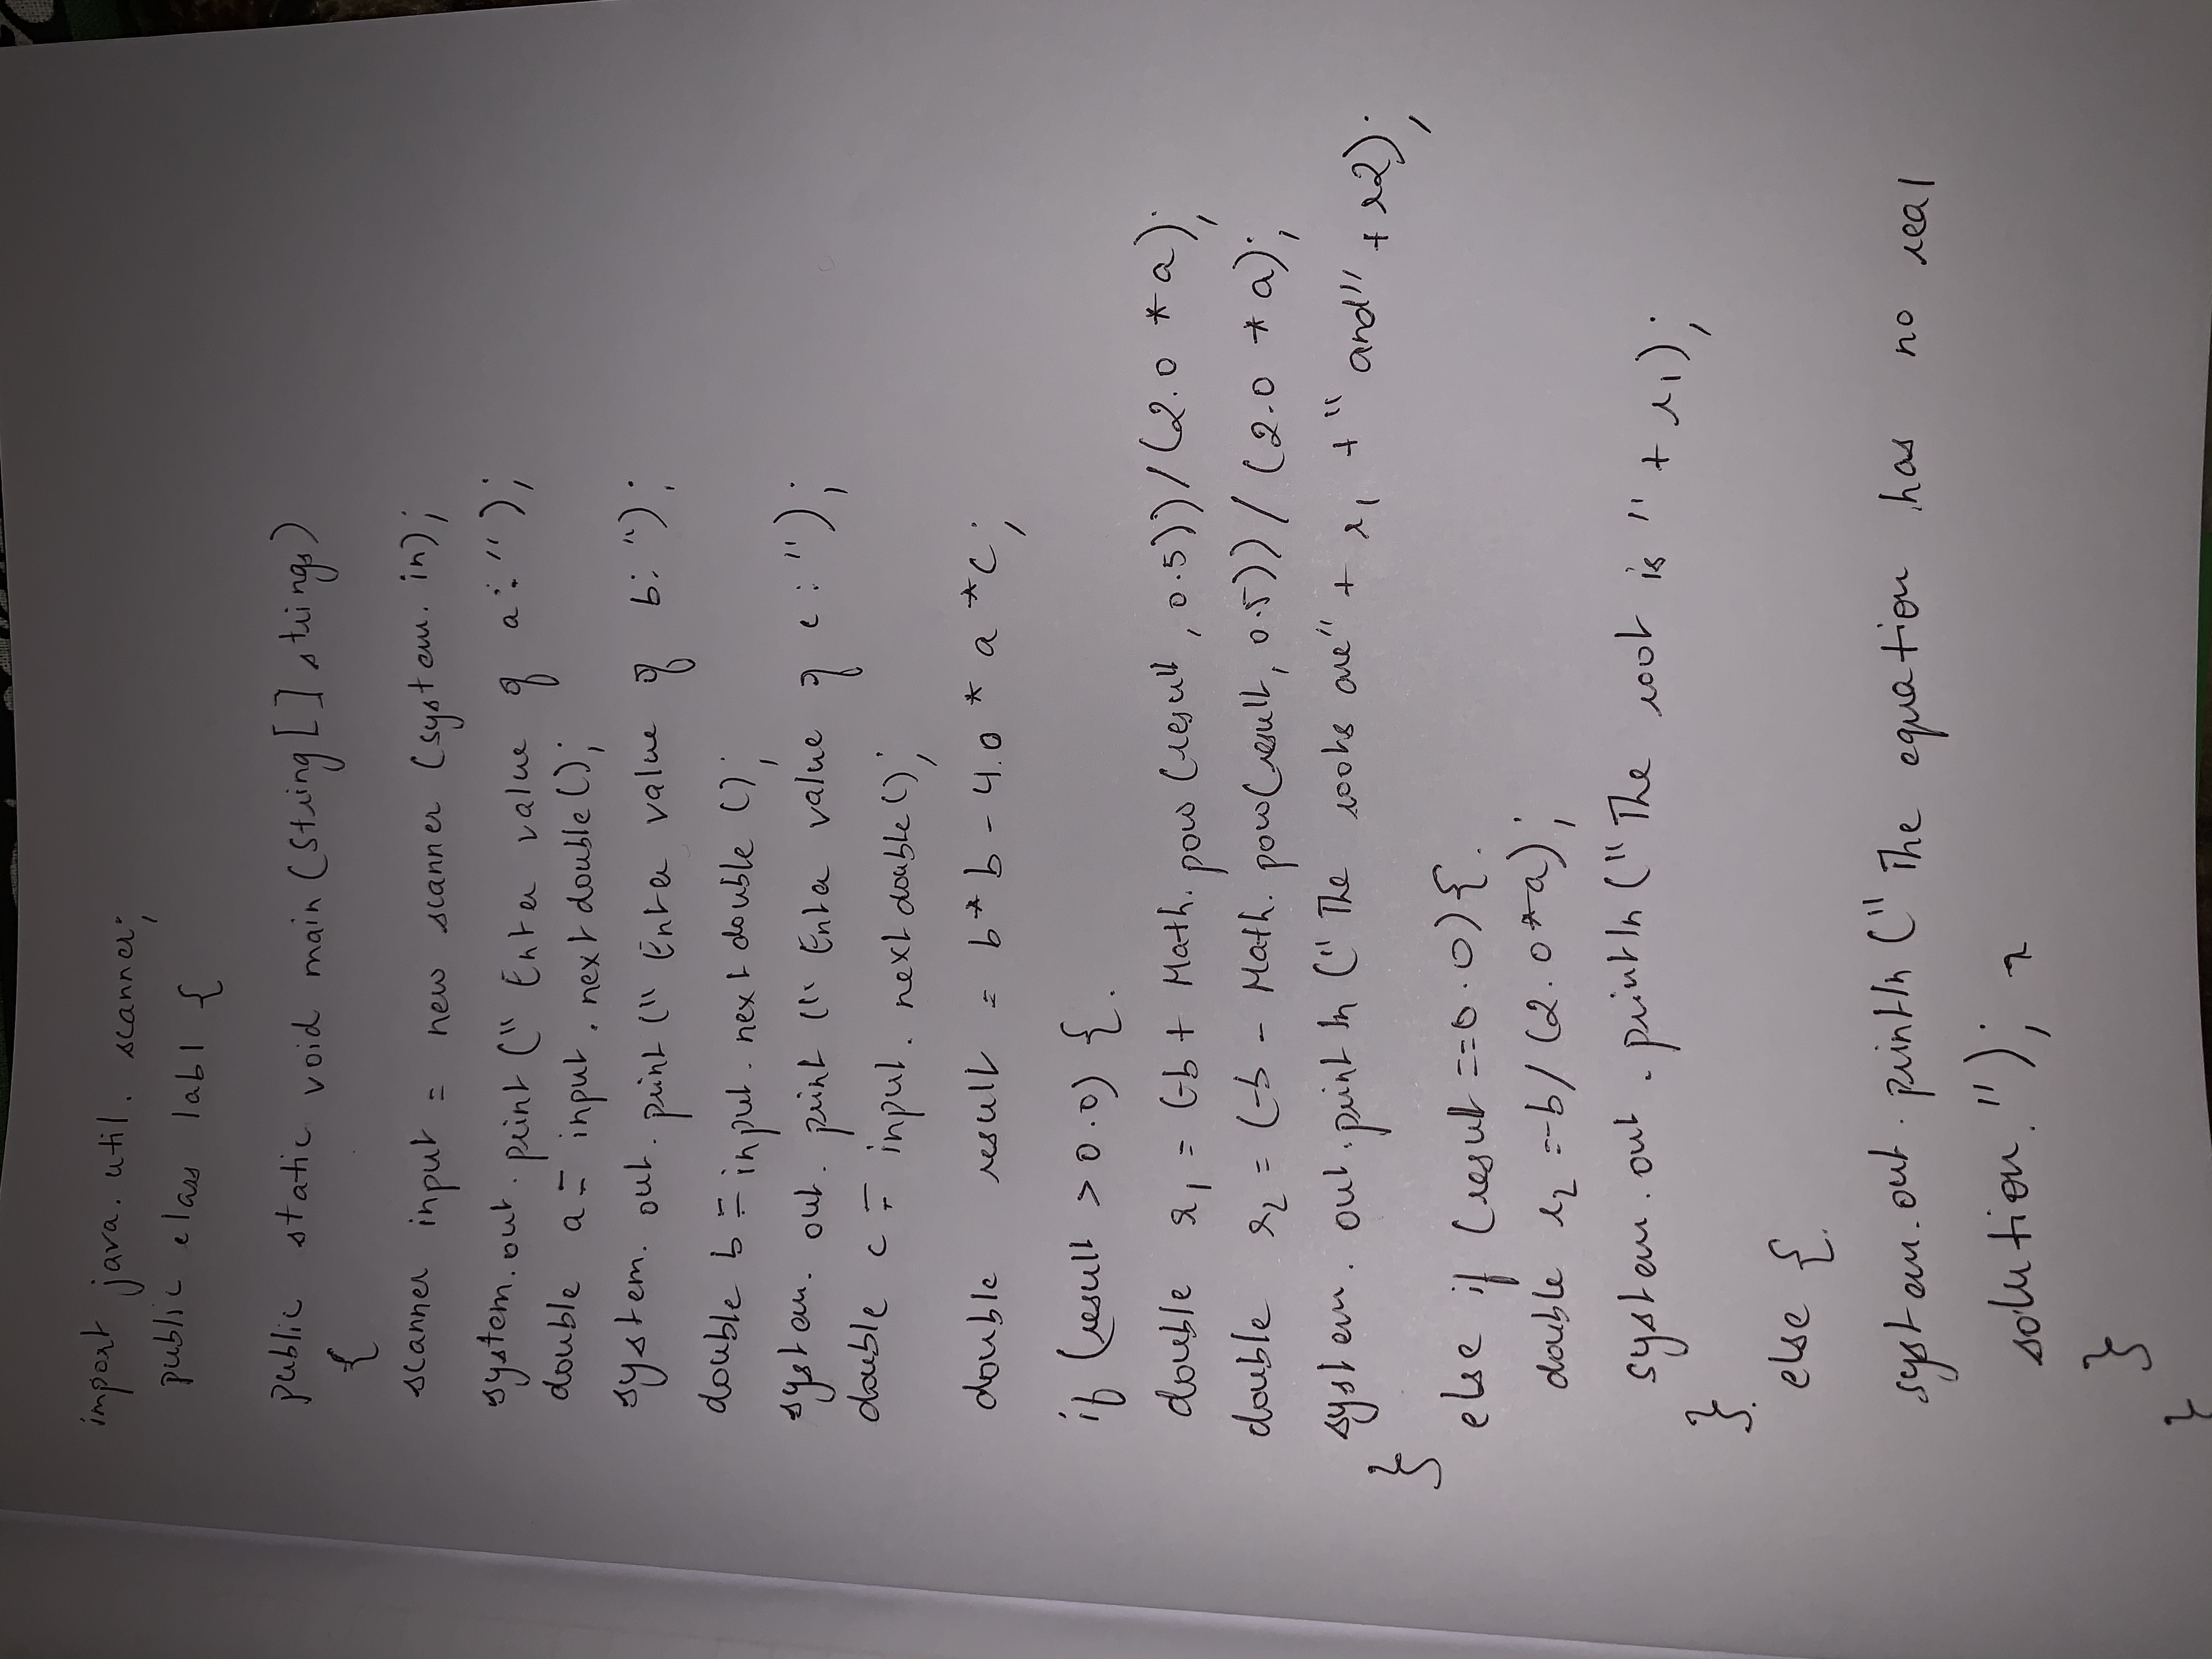 import java. util. scanner;
public class lab1 {
public static void main (String [ ] strings)
{
scanner input = new scanner (system. in);
system. out. print (" Enter value of a: ");
double a = input. next double ();
system. out. print (" Enter value of b: ");
double b = input. next double ();
system. out. print (" Enter value of c: ");
double c = input. next double ();
double result = b * b - 4.0 * a * c;
if (result > 0.0) {.
double r1 = (-b + Math. pow (result, 0.5)) / (2.0 * a);
double r2 = (-b - Math. pow (result, 0.5)) / (2.0 * a);
system. out. println (" The roots are" + r1 + " and" + r2);
}
else if (result == 0.0) {.
double r2 = -b / (2.0 * a);
system. out. println (" The root is " + r1);
}.
else {.
system. out. println (" The equation has no real
solution. ");
}
}